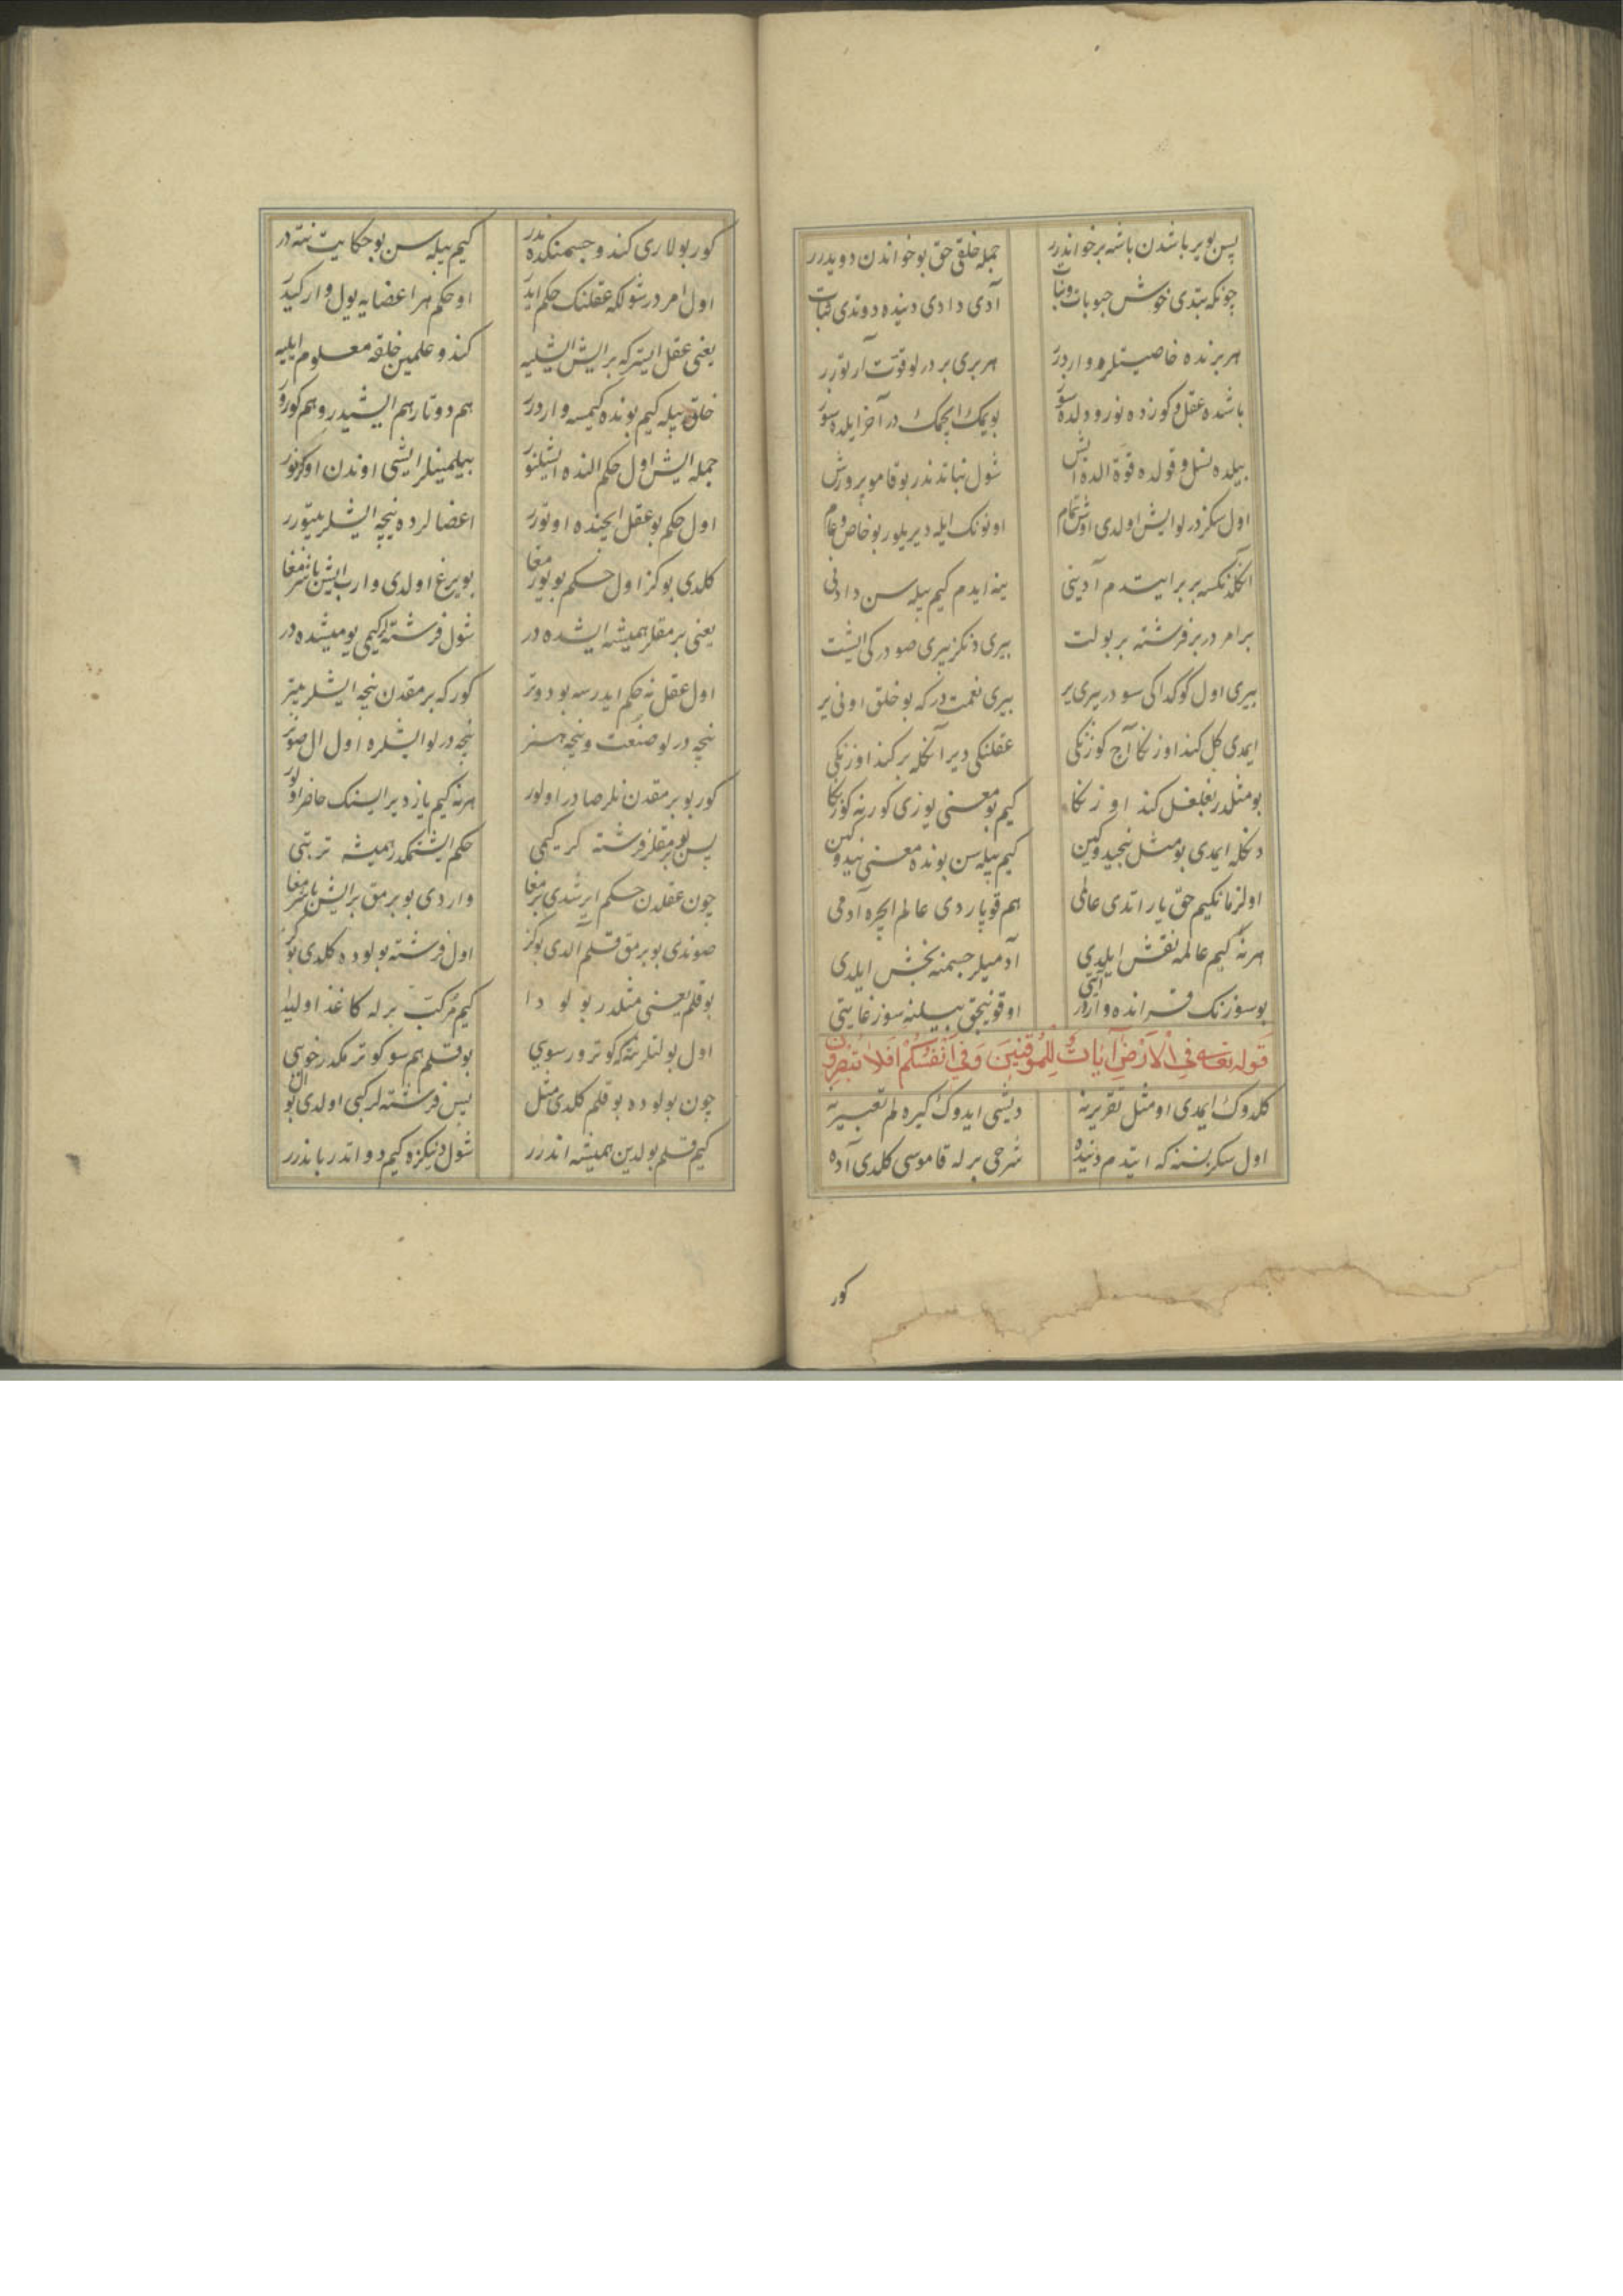 پس بو یر باشدن باشه بر خواندر جمله خلقی حق بو خواندن دویدرر
چونکه بتدی خوش حبوبات و نبات آدی دادی دنیده دوتدی ثبات
هر برنده خاصیتلر وارد در هر بری بر درلو قوت آرتورر
باشده عقل و کوزده نور و دلده سوز بو یمک ایچمک در آخر ایلده سوز
بیلده نسل و قولده قوة الده ایش شول نباتدندر بو قامو پرورش
اول سکز درلو ایش اولدی اوش تمام اونونک ایله دیریلور بو خاص و عام
انکله نکسه بر بر ایتدم آدینی ینه ایدم کیم بیله سن دادنی
بر امر در بر فرشته بر بولت بیری دنکز بیری صو در کی ایشت
بیری اول کوکداکی سو در بیری یر بیری نعمت در که بو خلق اونی یر
ایمدی کل کند اوزنکا آچ کوزنکی عقلنکی دیر انکله بر کند اوزنکی
بو مثلدر بغلغل کند اوزنکا کیم بو معنی یوزی کورنه کوزنکا
دکله ایمدی بو مثل نیجیدوکین کیم بیله سن بونده معنی نیدوکین
اول زمانکیم حق یاراتدی عالمی هم قوپاردی عالم ایچره آدمی
هر نه کیم عالمه نقش ایلدی آدمیلر جسمنه بخش ایلدی
بو سوزنک قراندہ وارد در آیتی اوقونیجق بیلنه سوز غایتی
قوله تعالی وفی الارض آیات للموقنین وفی انفسکم افلا تبصرون
کلدوک ایمدی او مثل تقریرنه دیشی ایدوک کیره لم تعبیرینه
اول سکز نسنه که ایتدم دنیده شرحی برله قاموسی کلدی آده
کور
کور بولاری کندو جسمنکده ندر کیم بیله سن بو حکایت نته در
اول امر در شولکه عقلنک حکم ایدر او حکم هر اعضایه یول وار کیدر
یعنی عقل ایستر که بر ایش ایشلیه کندو علمین خلقه معلوم ایلیه
خلق بیله کیم بونده کیمسه وار درر هم دوتار هم ایشیدر و هم کورر
جمله ایش اول حکم النده ایشلنور بیلمینلر ایشی اوندن اوکرنور
اول حکم بو عقل ایچنده اوتورر اعضالرده نیچه ایشلر بتورر
کلدی بو کز اول حکم بو بویرمغا بویرغ اولدی وارب ایش باشرمغا
یعنی برمقلر همیشه ایشده در شول فرشته لر کیمی یومیشده در
اول عقل نه حکم ایدرسه بو دوتر کور که برمقدن نیچه ایشلر بیتر
نیچه درلو صنعت و نیچه هنر نیچه درلو ایشلره اول ال صونر
کور بو برمقدن نلر صادر اولور هر نه کیم یاز دیر ایسنک حاضر اولور
پس بو برمقلر فرشته کر کیمی حکم ایشتمکدر همیشه ترتبی
چون عقلدن حکم ایرشدی برمغا واردی بو برمق بر ایش باشرمغا
صوندی بو برمق قلم آلدی بو کز اول فرشته بولوده کلدی بو کز
بو قلم یعنی مثلدر بولودا کیم مرکب برله کاغذ اولیدا
اول بولتلر نته که کوترور سویی بو قلم هم سو کوترمکدر خویی
چون بولوده بو قلم کلدی مثل پس فرشته لر کبی اولدی بو ال
کیم قلم بولدین همیشه اندرر شول دنیکزه کیم دواتدر باندرر